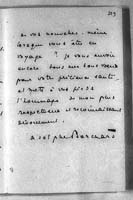 219
de vos nouvelles. même
lorsque vous êtes en
voyage ? je vous envoie
encore tous mes vœux
pour votre précieuse santé
et mets à vos pieds
l'hommage de mon plus
respectueux et reconnaissant
dévouement.
adolphe